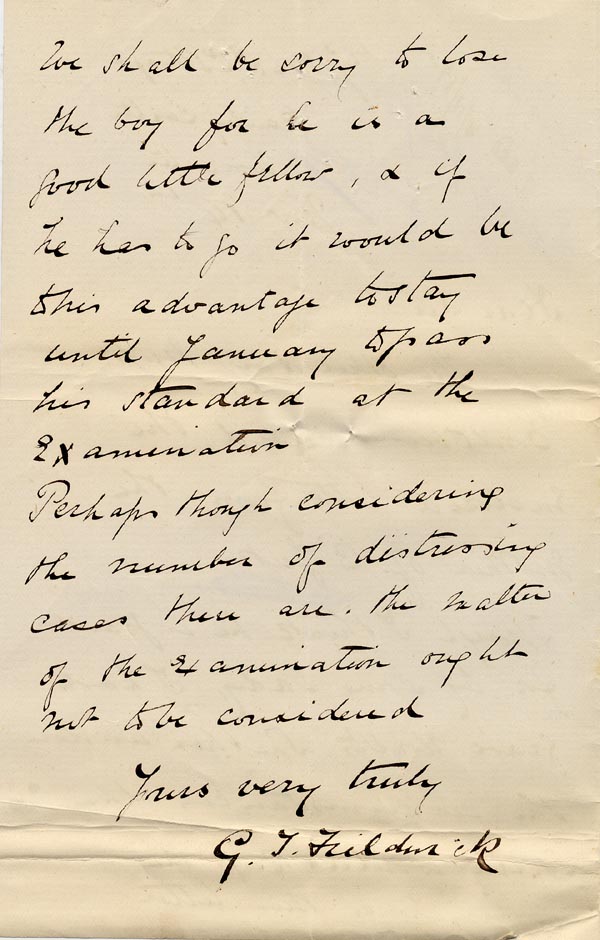 We shall be sorry to lose
the boy for he is a
good little fellow, & if
he has to go it would be
to his advantage to stay
until January to pass
his standard at the
Examination
Perhaps though considering
the number of distressing
cases there are. the matter
of the Examination ought
not to be considered
Yours very truly
G. T.